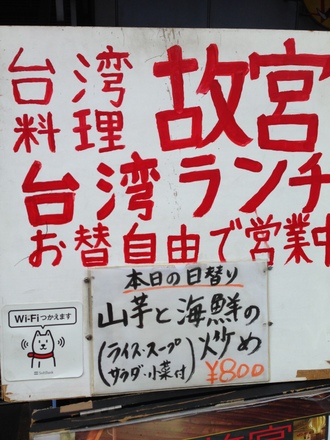 台湾
料理
故宮
台湾ランチ
お替自由で営業中
本日の日替り
山芋と海鮮の
炒め
(ライス・スープ
サラダ・小菜付)
¥800
Wi-Fiつかえます
SoftBank
故宮